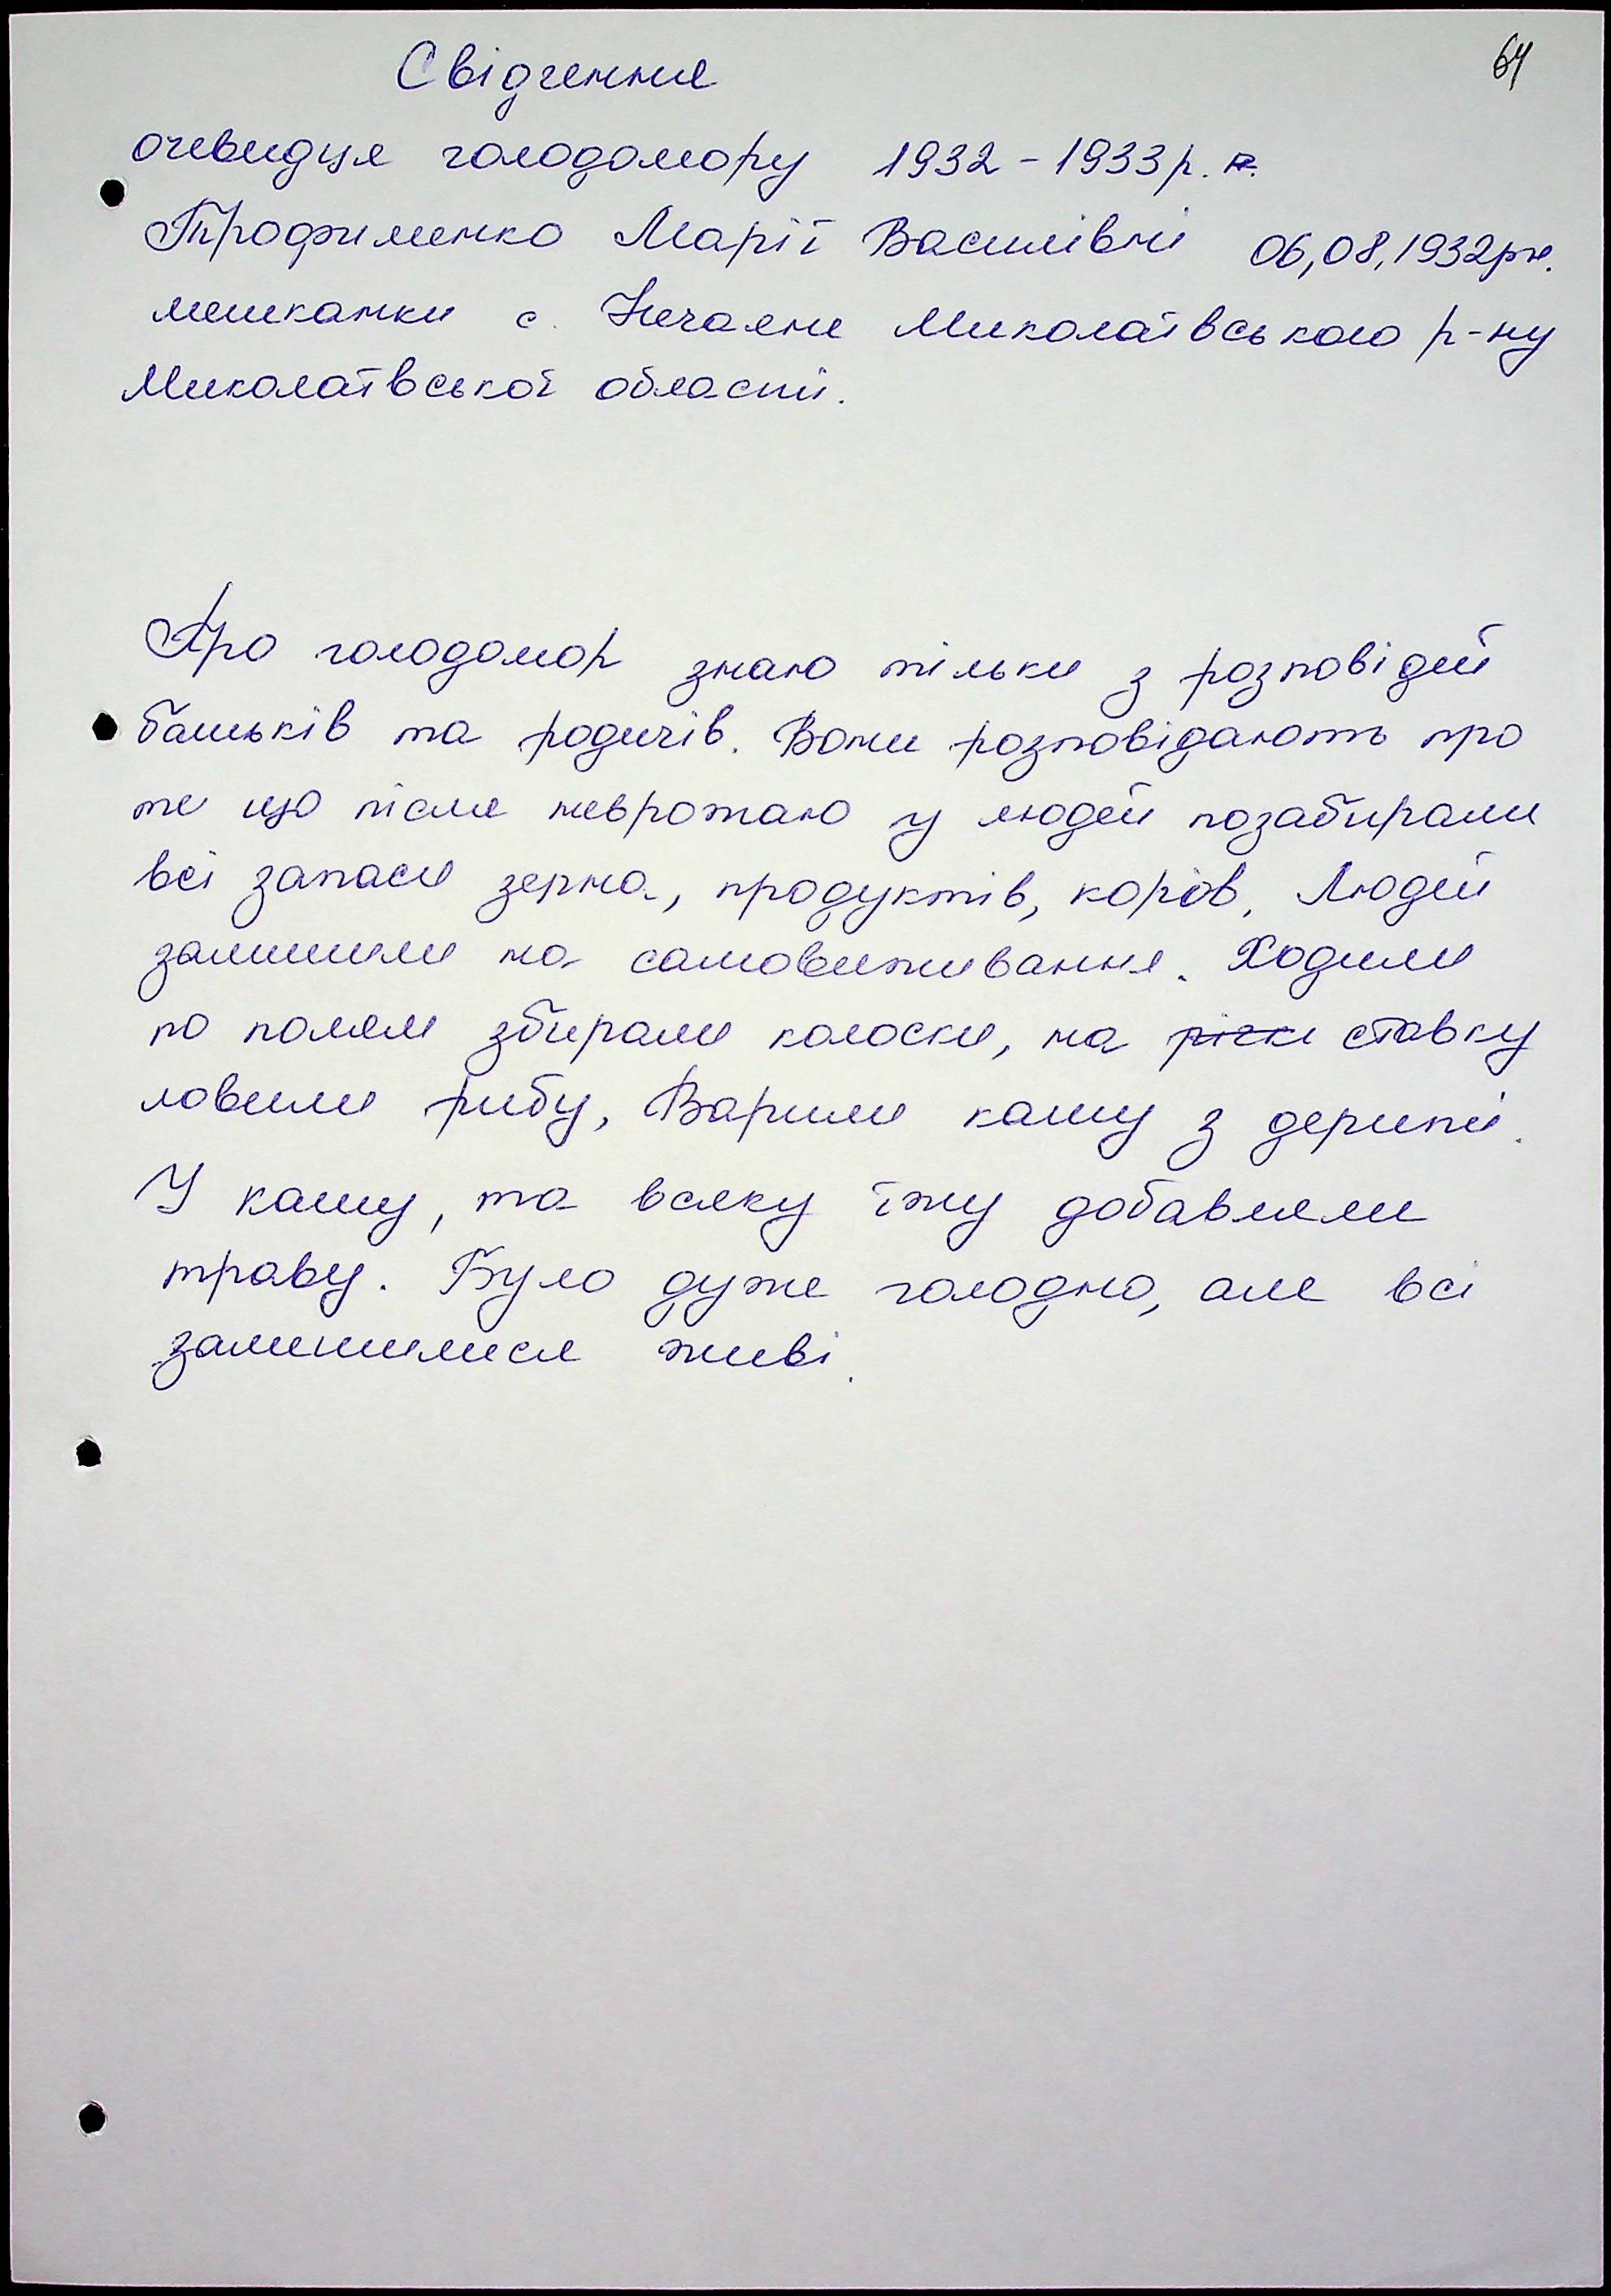 64
Свідчення
очевидця голодомору 1932-1933р.
Трофименко Марії Василівні 06,08,1932рн.
мешканки с. Нечаяне Миколаївського р-ну
Миколаївської області.
Про голодомор знаю тільки з розповідей
батьків та родичів. Вони розповідають про
те що після неврожаю у людей позабирали
всі запаси зерна, продуктів, корів. Людей
залишили на самовиживання. Ходили
по полям збирали колоски, на річкі ставку
ловили рибу, Варили кашу з дерипи.
У кашу, та всяку їжу добавляли
траву. Було дуже голодно, але всі
залишилися живі.